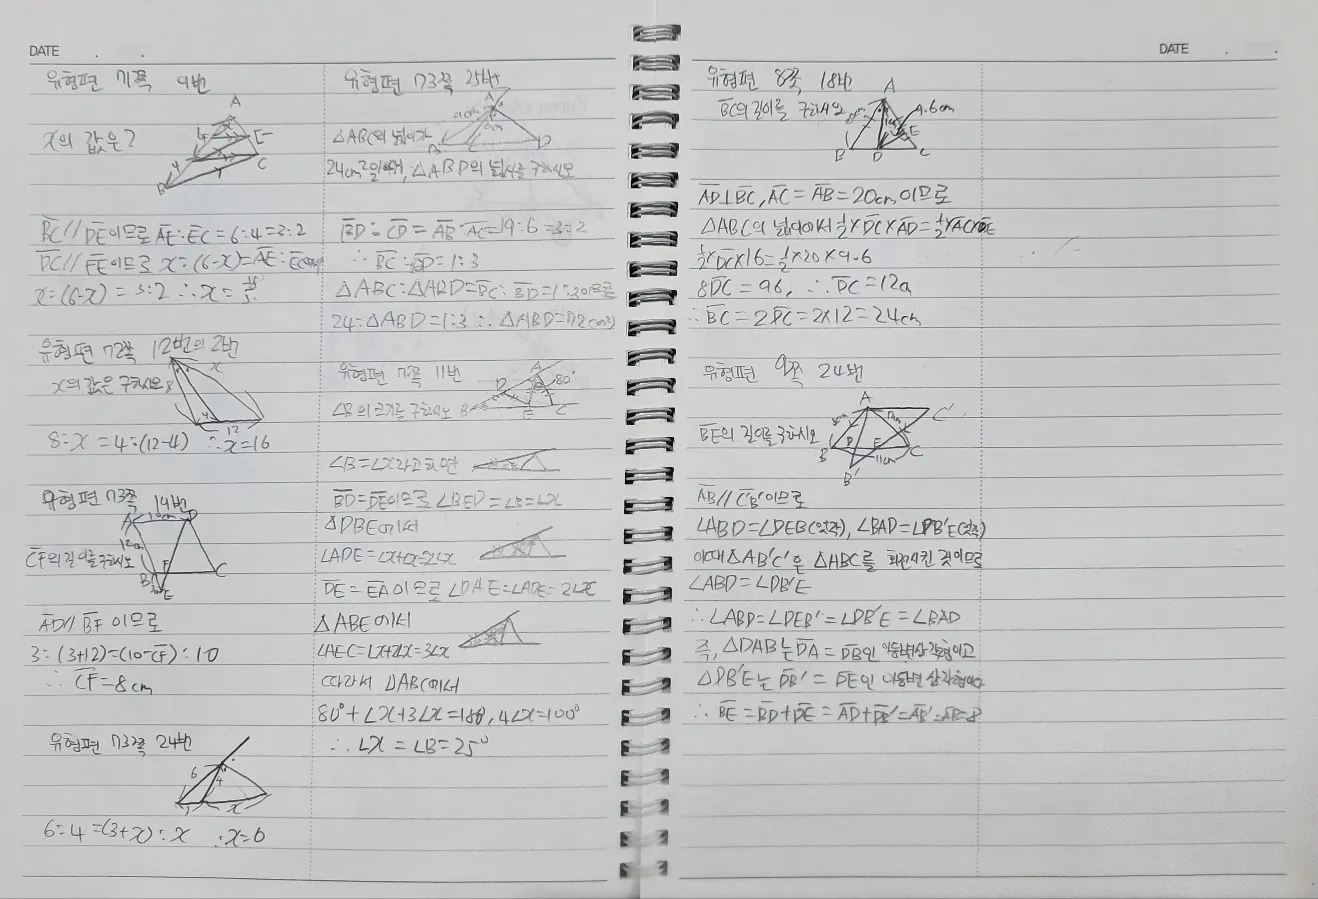 DATE . .
유형편 71쪽 9번
A
x의 값은?
4
E
C
B
BC // DE이므로 AE : EC = 6 : 4 = 3 : 2
DC // FE이므로 x : (6-x) = AE : EC
x : (6-x) = 3 : 2 ∴ x = 18/5
유형편 72쪽 12번의 2번
x의 값은 구하시오
8
x
4
12
8 : x = 4 : (12-4) ∴ x = 16
유형편 73쪽 19번
A 10cm D
12cm
CF의 길이를 구하시오
B F C
E
AD // BF 이므로
3 : (3+12) = (10-CF) : 10
∴ CF = 8cm
유형편 73쪽 24번
6
4
x
6 : 4 = (3+x) : x ∴ x = 6
유형편 73쪽 25번
A
6cm
△ABC의 넓이가
B C D
24cm²일때, △ABD의 넓이를 구하시오
BD : CD = AB : AC = 9 : 6 = 3 : 2
∴ BC : BD = 1 : 3
△ABC : △ABD = BC : BD = 1 : 3이므로
24 : △ABD = 1 : 3 ∴ △ABD = 72 (cm²)
유형편 7쪽 11번
A
D
80°
∠B의 크기를 구하시오
B E C
∠B = ∠x라고 하면
BD = DE이므로 ∠BED = ∠B = ∠x
△DBE에서
∠ADE = ∠x+∠x = 2∠x
DE = EA 이므로 ∠DAE = ∠ADE = 2∠x
△ABE에서
∠AEC = ∠x+2∠x = 3∠x
따라서 △ABC에서
80° + ∠x + 3∠x = 180°, 4∠x = 100°
∴ ∠x = ∠B = 25°
DATE . .
유형편 8쪽 18번
A
BC의 길이를 구하시오
9.6cm
E
B D C
AD⊥BC, AC = AB = 20cm 이므로
△ABC의 넓이에서 ½×DC×AD = ½×AC×DE
½×DC×16 = ½×20×9.6
8DC = 96, ∴ DC = 12cm
∴ BC = 2DC = 2×12 = 24cm
유형편 9쪽 24번
A
C'
BE의 길이를 구하시오
D E
B C
11cm
B'
AB // C'B'이므로
∠ABD = ∠DEB'(엇각), ∠BAD = ∠DB'E(엇각)
이때 △AB'C'은 △ABC를 회전시킨 것이므로
∠ABD = ∠DB'E
∴ ∠ABD = ∠DEB' = ∠DB'E = ∠BAD
즉, △DAB는 DA = DB인 이등변삼각형이고
△DB'E는 DB' = DE인 이등변삼각형이다
∴ BE = BD+DE = AD+DB' = AB' = AB = 8